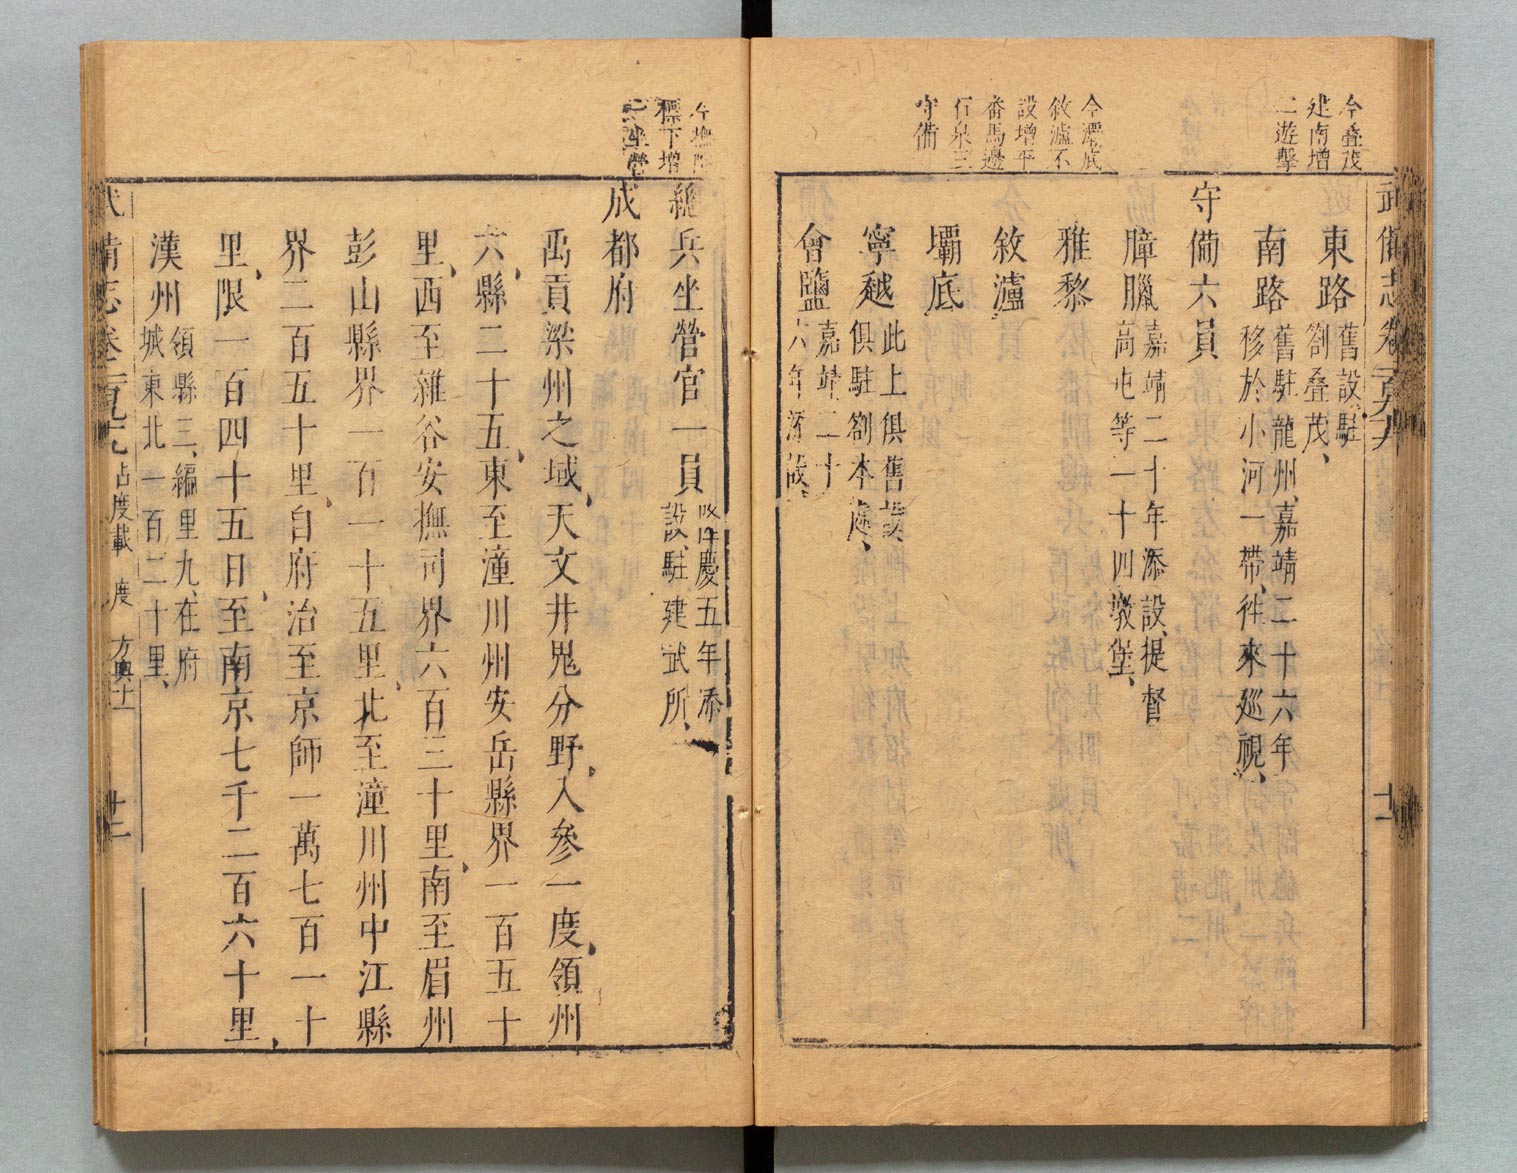 今疊茂
建南增
二遊擊
今瀘底
敘瀘不
設增平
番馬邊
石泉三
守備
武備志卷二百九 十一
東路舊設駐
劄疊茂、
南路舊駐龍州、嘉靖二十六年
移於小河一帶、往來巡視、
守備六員
臈嘉靖二十年添設、提督
高屯等一十四墩堡、
雅黎
敘瀘
壩底
寧越此上俱舊設
俱駐劄本處、
會鹽嘉靖二十
六年添設、
標下增
坐營
總兵坐營官一員慶五年添
設、駐建武所、
成都府
禹貢梁州之域、天文井鬼分野、入參一度、領州
六、縣二十五、東至潼川州安岳縣界一百五十
里、西至雜谷安撫司界六百三十里、南至眉州
彭山縣界一百一十五里、北至潼川州中江縣
界二百五十里、自府治至京師一萬七百一十
里、限一百四十五日、至南京七千二百六十里、
漢州領縣三、編里九、在府
城東北一百二十里、
備志卷 占度載 度 方輿十一 十二